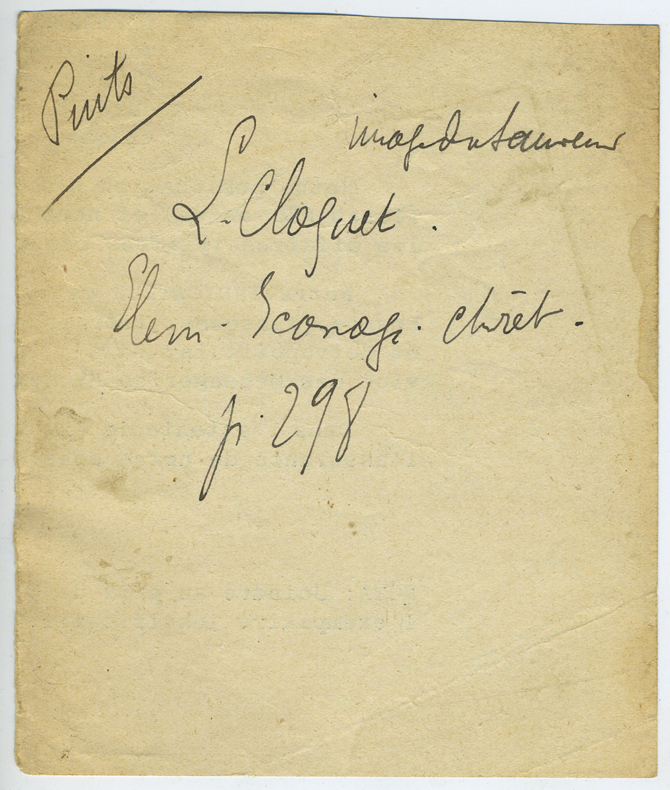 Puits
image du Sauveur
L. Cloquet.
Elem. Iconog. chrét.
p. 298